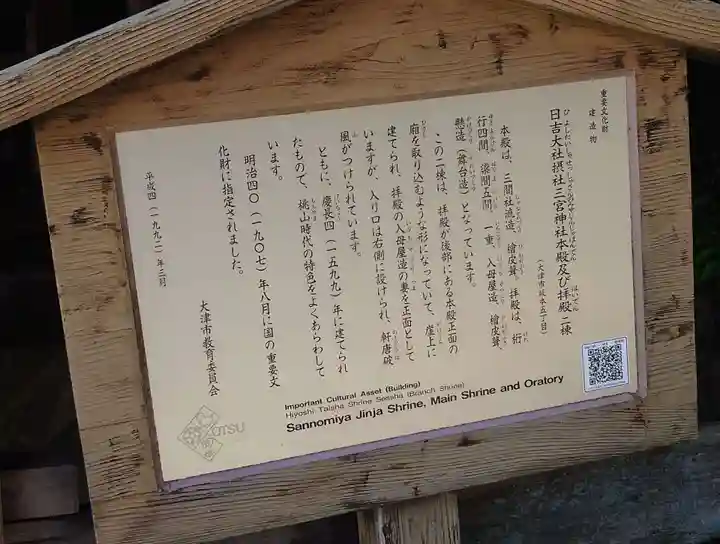 重要文化財
建造物
日吉大社摂社三宮神社本殿及び拝殿 二棟
(大津市坂本五丁目)
本殿は、三間社流造、檜皮葺、拝殿は、桁
行四間、梁間五間、一重、入母屋造、檜皮葺、
懸造(舞台造)となっています。
この二棟は、拝殿が後部にある本殿正面の
廂を取り込むような形になっていて、崖上に
建てられ、拝殿の入母屋造の妻を正面として
いますが、入り口は右側に設けられ、軒唐破
風がつけられています。
ともに、慶長四(一五九九)年に建てられ
たもので、桃山時代の特色をよくあらわして
います。
明治四〇(一九〇七)年八月に国の重要文
化財に指定されました。
平成四(一九九二)年三月
大津市教育委員会
Important Cultural Asset (Building)
Hiyoshi Taisha Shrine Sessha (Branch Shrine)
Sannomiya Jinja Shrine, Main Shrine and Oratory
OTSU